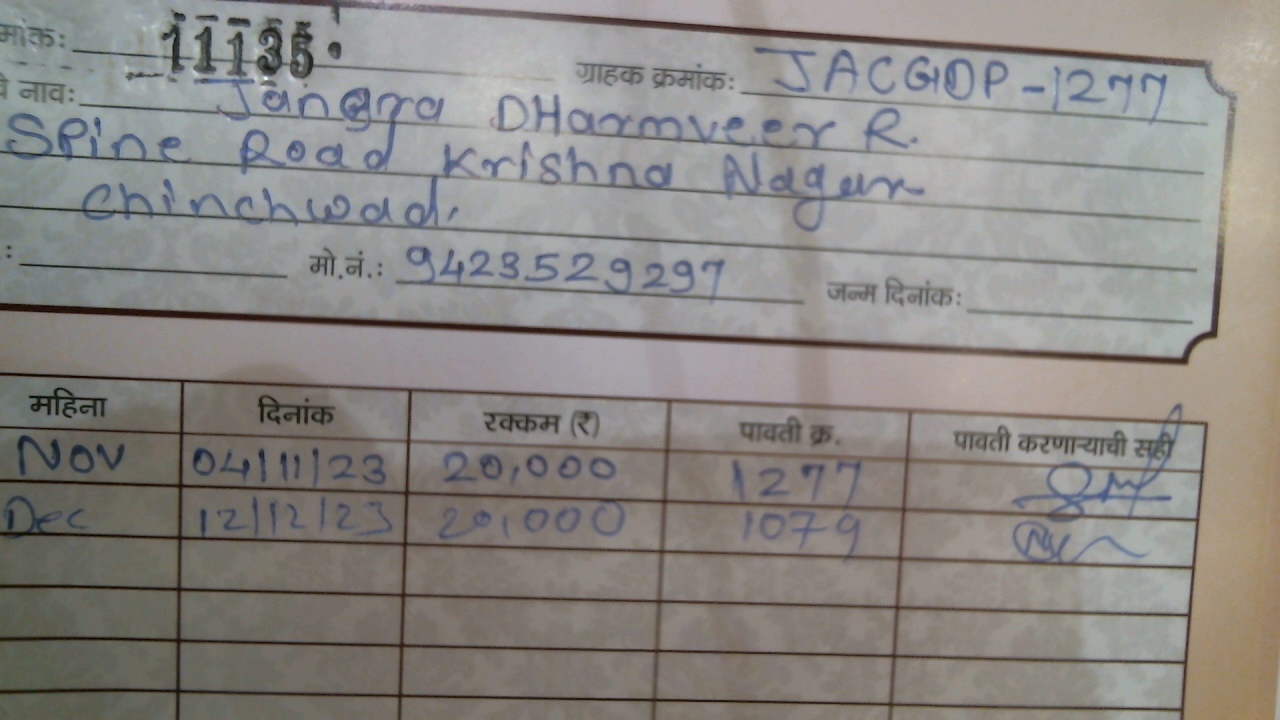 मांक: 11135. ग्राहक क्रमांक: JACGDP-1277
नाव: Jangra DHarmveer R.
Spine Road Krishna Nagar
Chinchwad.
: मो.नं.: 9423529297 जन्म दिनांक:
महिना दिनांक रक्कम (₹) पावती क्र. पावती करणाऱ्याची सही
NOV 04/11/23 20,000 1277
Dec 12/12/23 20,000 1079